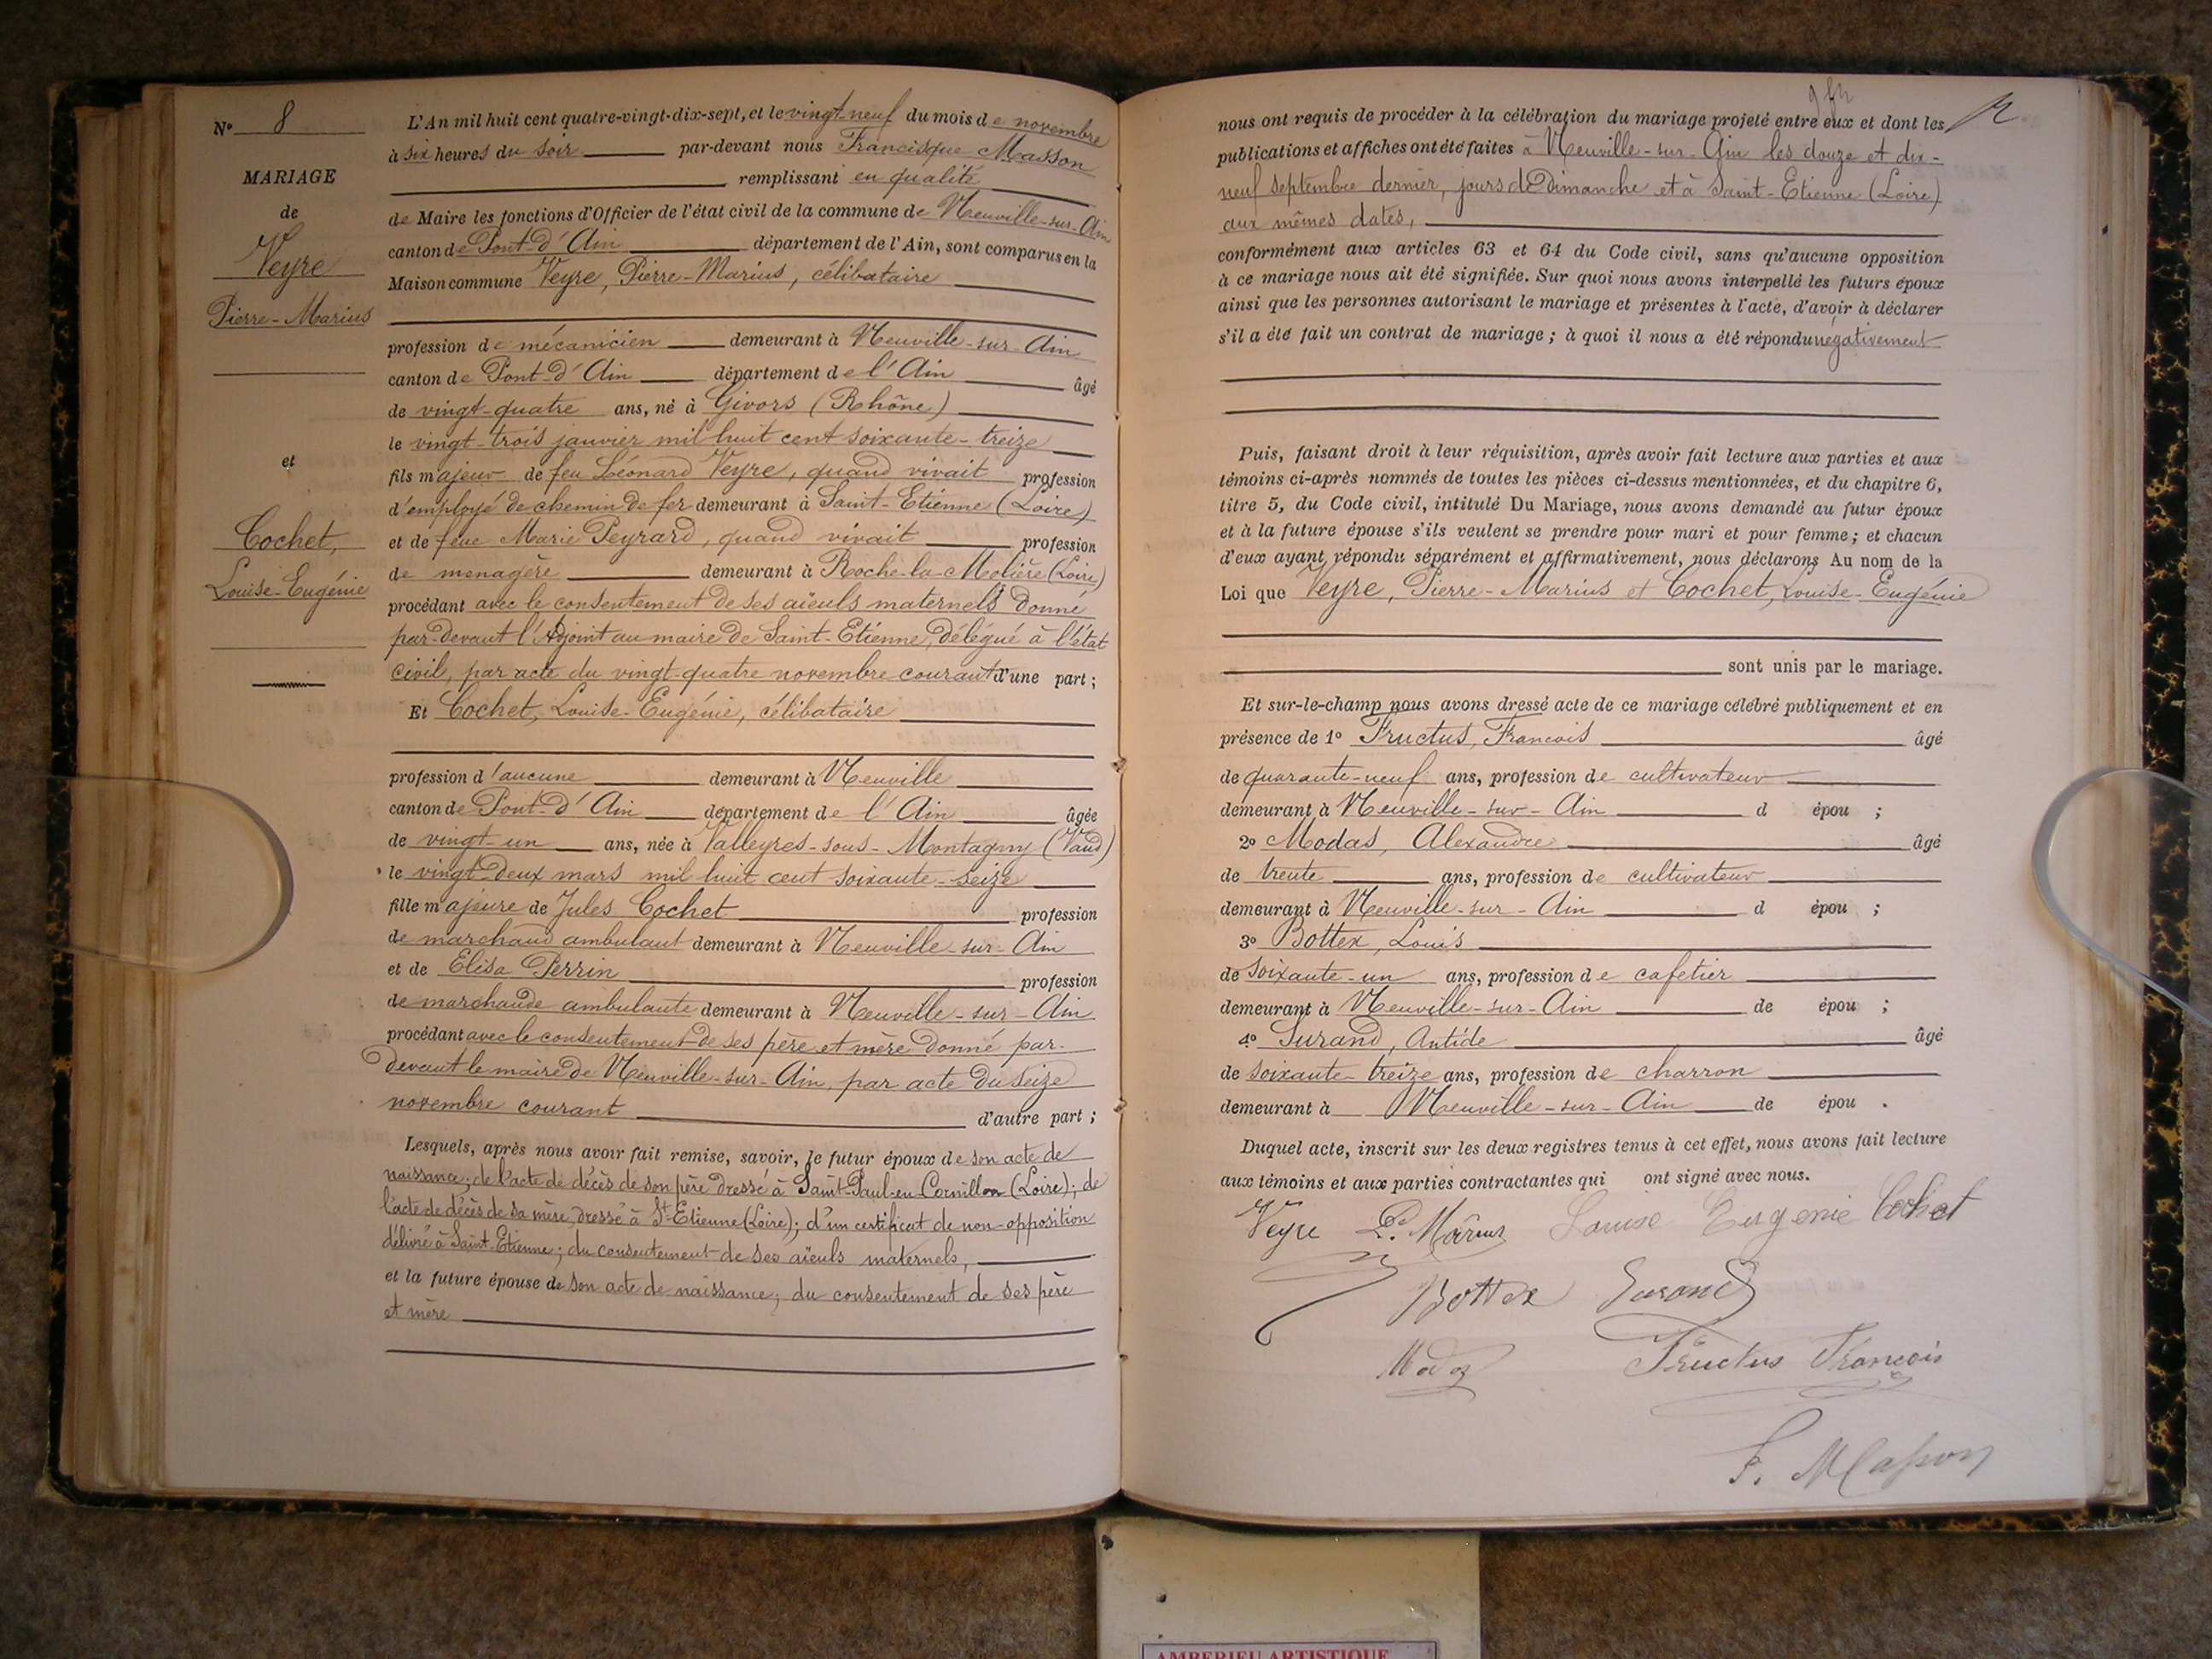 N° 8
MARIAGE
de
Veyre
Pierre-Marius
et
Cochet,
Louise-Eugénie
L'An mil huit cent quatre-vingt-dix-sept, et le vingt-neuf du mois de novembre
à six heures du soir par-devant nous Francisque Masson
remplissant en qualité
de Maire les fonctions d'Officier de l'état civil de la commune de Neuville-sur-Ain
canton de Pont-d'Ain département de l'Ain, sont comparus en la
Maison commune Veyre, Pierre-Marius, célibataire
profession de mécanicien demeurant à Neuville-sur-Ain
canton de Pont-d'Ain département de l'Ain âgé
de vingt-quatre ans, né à Givors (Rhône)
le vingt-trois janvier mil huit cent soixante-treize
fils majeur de feu Léonard Veyre, quand vivait profession
d'employé de chemin de fer demeurant à Saint-Etienne (Loire)
et de feue Marie Peyrard, quand vivait profession
de menagère demeurant à Roche-la-Molière (Loire)
procédant avec le consentement de ses aïeuls maternels donné
par-devant l'Adjoint au maire de Saint-Etienne, délégué à l'état
civil, par acte du vingt-quatre novembre courant d'une part ;
Et Cochet, Louise-Eugénie, célibataire
profession d'aucune demeurant à Neuville
canton de Pont-d'Ain département de l'Ain âgée
de vingt-un ans, née à Valleyres-sous-Montagny (Vaud)
le vingt-deux mars mil huit cent soixante-seize
fille majeure de Jules Cochet profession
de marchand ambulant demeurant à Neuville-sur-Ain
et de Elisa Perrin profession
de marchande ambulante demeurant à Neuville-sur-Ain
procédant avec le consentement de ses père et mère donné par-
devant le maire de Neuville-sur-Ain, par acte du seize
novembre courant d'autre part ;
Lesquels, après nous avoir fait remise, savoir, le futur époux de son acte de
naissance; de l'acte de décès de son père dressé à Saint-Paul-en-Cornillon (Loire); de
l'acte de décès de sa mère, dressé à St-Etienne (Loire); d'un certificat de non-opposition
délivré à Saint-Etienne; du consentement de ses aïeuls maternels,
et la future épouse de son acte de naissance; du consentement de ses père
et mère
nous ont requis de procéder à la célébration du mariage projeté entre eux et dont les
publications et affiches ont été faites à Neuville-sur-Ain les douze et dix-
neuf septembre dernier, jours de Dimanche et à Saint-Etienne (Loire)
aux mêmes dates,
conformément aux articles 63 et 64 du Code civil, sans qu'aucune opposition
à ce mariage nous ait été signifiée. Sur quoi nous avons interpellé les futurs époux
ainsi que les personnes autorisant le mariage et présentes à l'acte, d'avoir à déclarer
s'il a été fait un contrat de mariage ; à quoi il nous a été répondu négativement
Puis, faisant droit à leur réquisition, après avoir fait lecture aux parties et aux
témoins ci-après nommés de toutes les pièces ci-dessus mentionnées, et du chapitre 6,
titre 5, du Code civil, intitulé Du Mariage, nous avons demandé au futur époux
et à la future épouse s'ils veulent se prendre pour mari et pour femme ; et chacun
d'eux ayant répondu séparément et affirmativement, nous déclarons Au nom de la
Loi que Veyre, Pierre-Marius et Cochet, Louise-Eugénie
sont unis par le mariage.
Et sur-le-champ nous avons dressé acte de ce mariage célébré publiquement et en
présence de 1° Fructus, Francois âgé
de quarante-neuf ans, profession de cultivateur
demeurant à Neuville-sur-Ain d épou ;
2° Modas, Alexandre âgé
de trente ans, profession de cultivateur
demeurant à Neuville-sur-Ain d épou ;
3° Bottex, Louis
de soixante-un ans, profession de cafetier
demeurant à Neuville-sur-Ain de épou ;
4° Surand, Antide âgé
de soixante-treize ans, profession de charron
demeurant à Neuville-sur-Ain de épou .
Duquel acte, inscrit sur les deux registres tenus à cet effet, nous avons fait lecture
aux témoins et aux parties contractantes qui ont signé avec nous.
Veyre P. Márius Louise Eugenie Cochet
Bottex Surand
Fructus François
F. Masson
AMBERIEU ARTISTIQUE